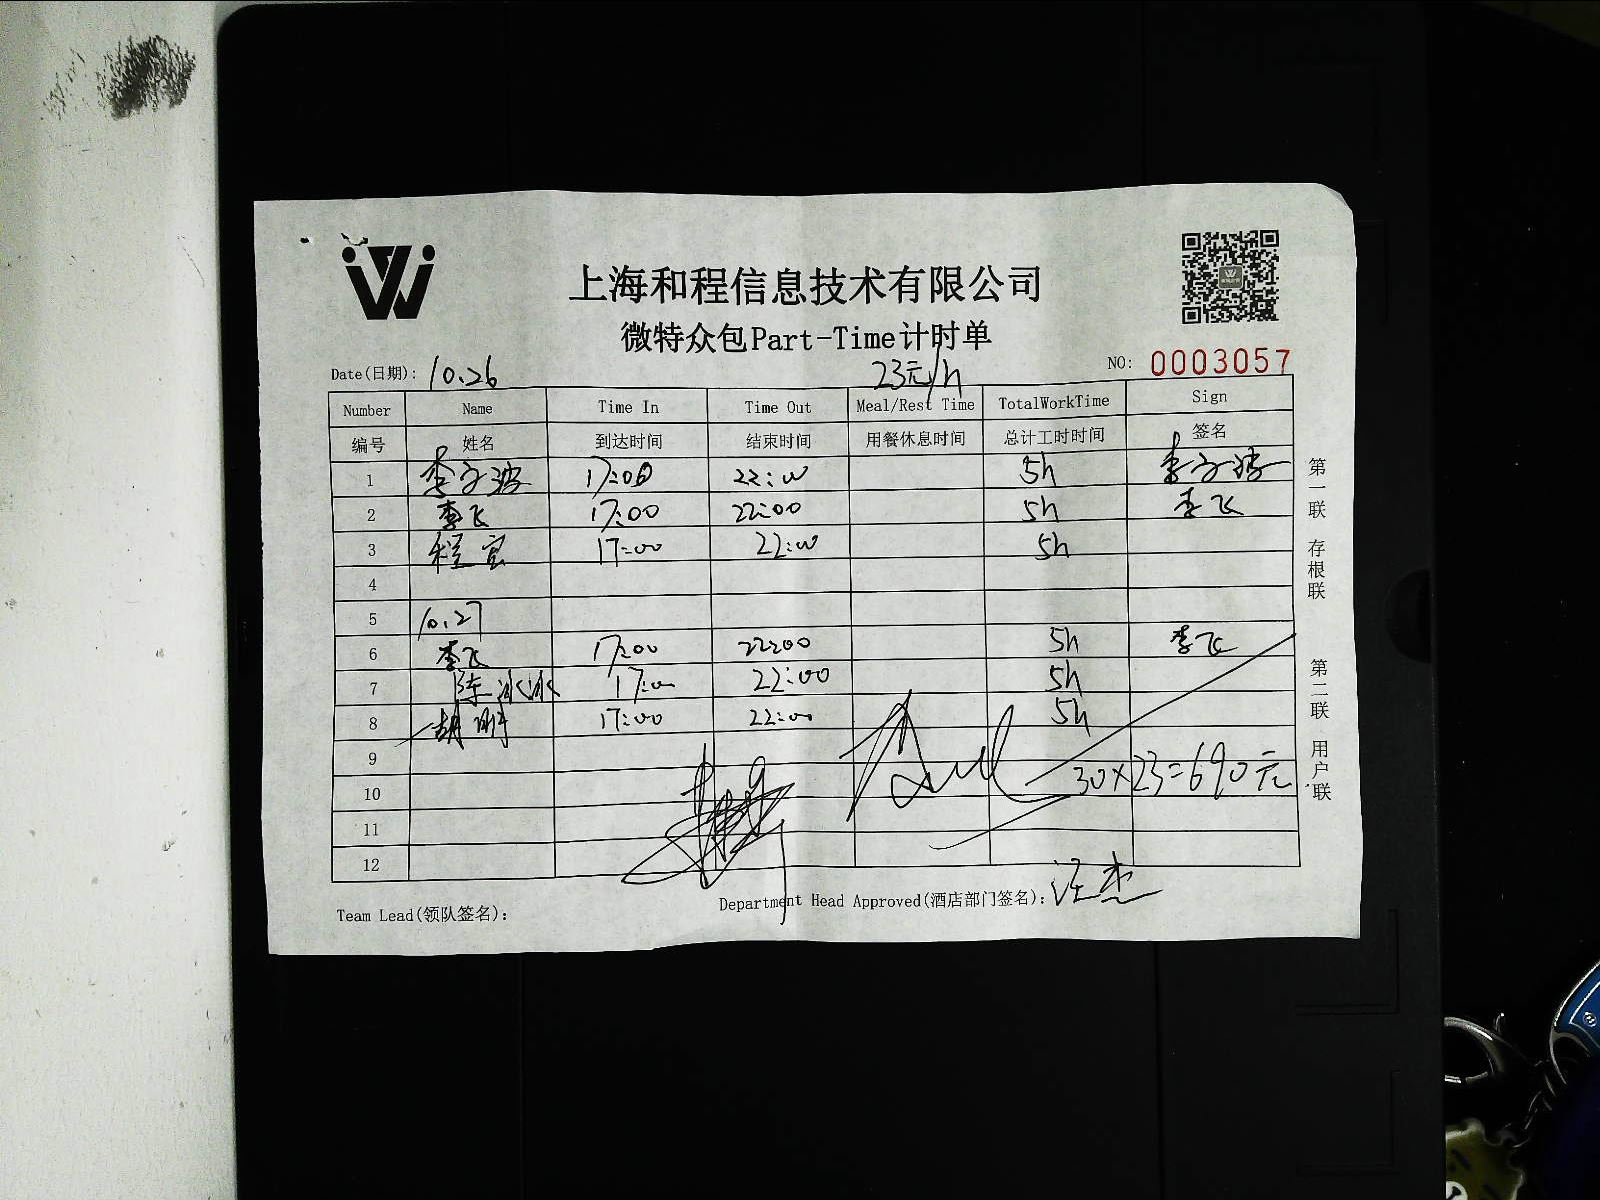 上海和程信息技术有限公司
微特众包Part-Time计时单
Date(日期): 10.26 23元/h NO: 0003057
Number Name Time In Time Out Meal/Rest Time TotalWorkTime Sign
编号 姓名 到达时间 结束时间 用餐休息时间 总计工时时间 签名
1 李子波 17:00 22:00 5h 李子波
2 李飞 17:00 22:00 5h 李飞
3 程宏 17:00 22:00 5h
4
5 10.27
6 李飞 17:00 22:00 5h 李飞
7 陈冰冰 17:00 22:00 5h
8 胡明 17:00 22:00 5h
9
10 30×23=690元
11
12
Team Lead(领队签名): Department Head Approved(酒店部门签名): 汪杰
第一联 存根联
第二联 用户联